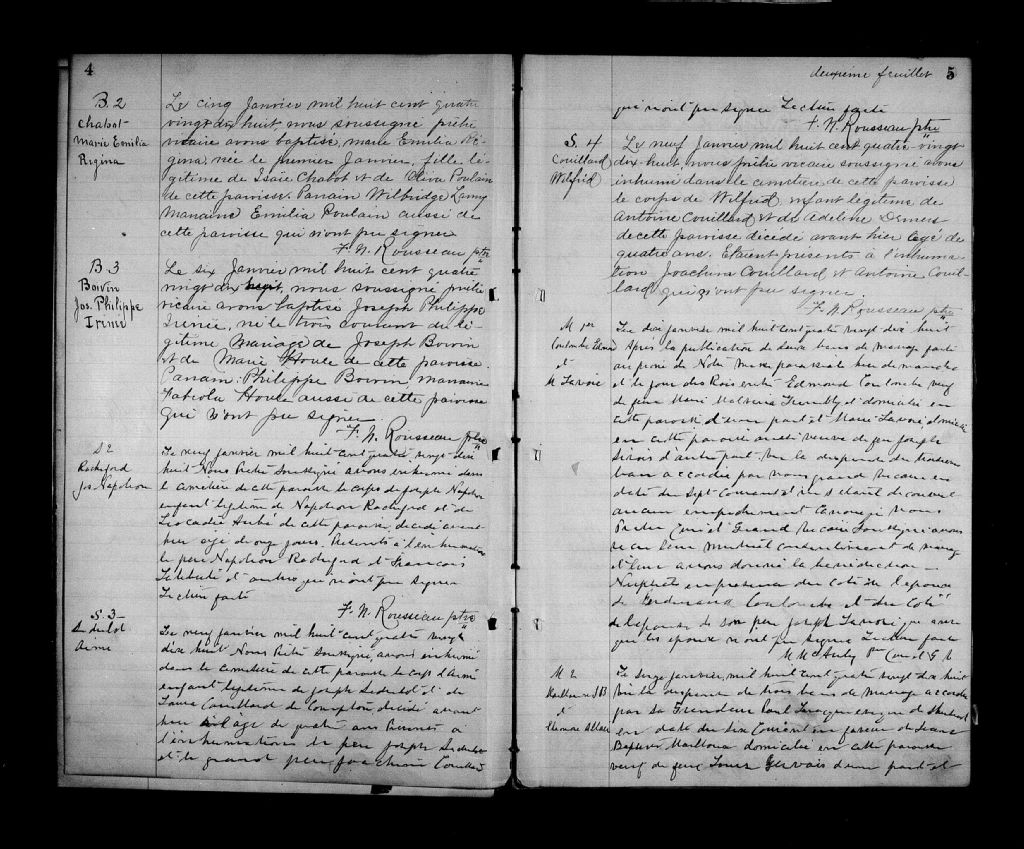 4
B. 2
Chabot
Marie Emilia
Régina
Le cinq Janvier mil huit cent quatre
vingt dix huit, nous soussigné prêtre
vicaire avons baptisé, Marie Emilia Ré-
gina, née le premier Janvier, fille lé-
gitime de Isaïe Chabot et de Oliva Poulain
de cette paroisse. Parrain Wilbridge Lamy
Marraine Emilia Poulain aussi de
cette paroisse qui n'ont pu signer
F. N. Rousseau ptre
B 3
Boivin
Jos. Philippe
Irénée
Le six Janvier mil huit cent quatre
vingt dix huit, nous soussigné prêtre
vicaire avons baptisé Joseph Philippe
Irénée, né le trois courant du lé-
gitime Mariage de Joseph Boivin
et de Marie Houle de cette paroisse.
Parrain: Philippe Boivin, marraine
Fabiola Houle aussi de cette paroisse
qui n'ont pu signer
F. N. Rousseau ptre
S 2
Rochford
Jos Napoléon
Le neuf janvier mil huit cent quatre vingt dix
huit Nous Prêtre Soussigné avons inhumé dans
le cimetière de cette paroisse le corps de Joseph Napoléon
enfant légitime de Napoléon Rochford et de
Léocadie Aubé de cette paroisse décédé avant
hier agé de onze jours. Présents à l'inhumation
le père Napoléon Rochford et François
Tétu et autres qui n'ont pu signer
Lecture faite
F. N. Rousseau ptre
S. 3
Aimé
Le neuf janvier mil huit cent quatre vingt
dix huit Nous Prêtre Soussigné, avons inhumé
dans le cimetière de cette paroisse le corps d'Aimé
enfant légitime de Joseph et de
Couillard de Compton décédé avant
hier âgé de quatre ans Présents à
l'inhumation le père Joseph
et le grand père Joachim Couillard
deuxième feuillet 5
qui n'ont pu signer Lecture faite
F. N. Rousseau ptre
S. 4
Couillard
Wilfrid
Le neuf Janvier mil huit cent quatre-vingt
dix-huit nous prêtre vicaire soussigné avons
inhumé dans le cimetière de cette paroisse
le corps de Wilfrid, enfant légitime de
Antoine Couillard et de Adeline Demers
de cette paroisse décédé avant hier âgé de
quatre ans. Etaient présents à l'inhuma-
tion Joachim Couillard et Antoine Couil-
lard qui n'ont pu signer
F. N. Rousseau ptre
M 1er
Coulombe Edmond
et
M Lavoie
Le dix janvier mil huit cent quatre vingt dix huit
Après la publication de deux bans de mariage faite
au prône de Notre Messe paroissiale hier dimanche
et le jour des Rois entre Edmond Coulombe veuf
de feue Marie Tremblay et domicilié en
cette paroisse d'une part et Marie Lavoie domiciliée
en cette paroisse aussi veuve de feu Joseph
Sirois d'autre part. Vu la dispense du troisième
ban accordée par nous grand vicaire en
date du sept Courant et ne s'étant découvert
aucun empêchement Canonique Nous
Prêtre Curé et Grand Vicaire Soussigné avons
reçu leur mutuel consentement de mariage
et leur avons donné la bénédiction
Nuptiale en présence du côté de l'époux
de Ferdinand Coulombe et du côté
de l'épouse de son père Joseph Lavoie qui ainsi
que les époux n'ont pu signer Lecture faite
M McAuley Ptre Curé et G. V.
M 2
et
Le Seize janvier, mil huit cent quatre vingt dix huit
Vu la dispense de trois bans de mariage accordée
par Sa Grandeur Paul Larocque évêque de Sherbrooke
en date du Six Courant en faveur de Jean
Baptiste Mailloux domicilié en cette paroisse
veuf de feue Louise Gervais d'une part et